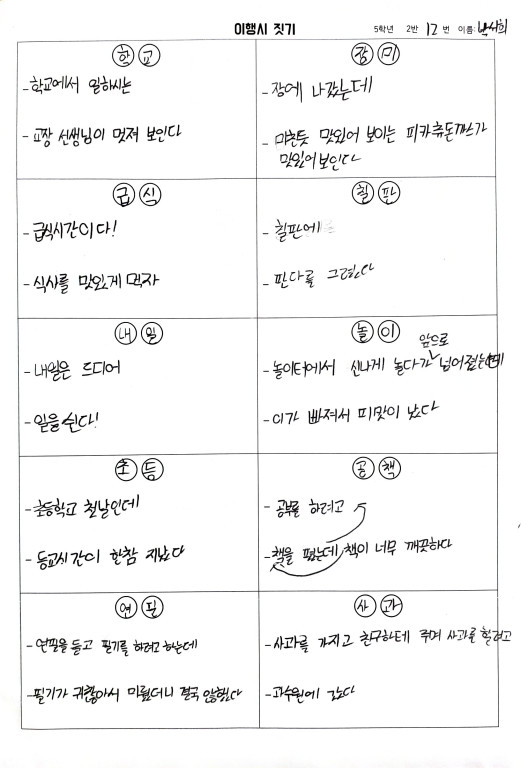 이행시 짓기
5학년 2반 12번 이름: 박서희
학교
- 학교에서 일하시는
- 교장 선생님이 멋져 보인다
장미
- 장에 나갔는데
- 미친듯 맛있어 보이는 피카츄돈까스가
맛있어보인다
급식
- 급식시간이다!
- 식사를 맛있게 먹자
칠판
- 칠판에
- 판다를 그렸다
내일
- 내일은 드디어
- 일을 쉰다!
놀이
앞으로
- 놀이터에서 신나게 놀다가 넘어졌는데
- 이가 빠져서 피맛이 났다
초등
- 초등학교 첫날인데
- 등교시간이 한참 지났다
공책
- 공부를 하려고
- 책을 폈는데 책이 너무 깨끗하다
연필
- 연필을 들고 필기를 하려고 하는데
- 필기가 귀찮아서 미뤘더니 결국 안했다
사과
- 사과를 가지고 친구한테 주며 사과를 할려고
- 과수원에 갔다